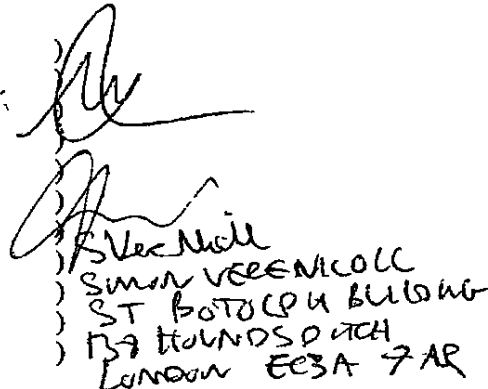 S Vere Nicoll
SIMON VERE NICOLL
ST BOTOLPH BUILDING
139 HOUNDSDITCH
LONDON EC3A 7AR